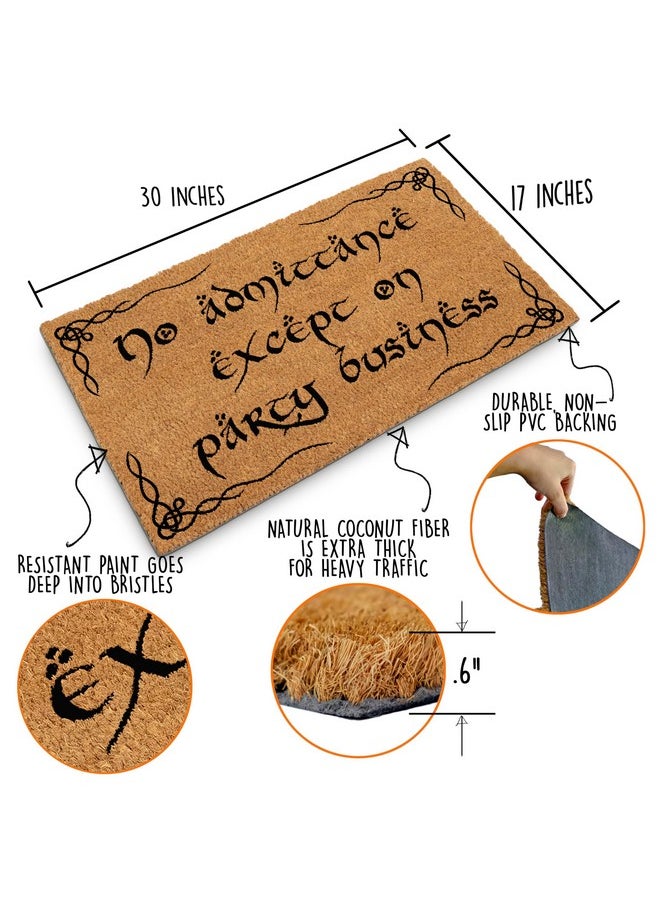 30 INCHES
17 INCHES
No admittance
except on
party business
DURABLE, NON-
SLIP PVC BACKING
NATURAL COCONUT FIBER
IS EXTRA THICK
FOR HEAVY TRAFFIC
RESISTANT PAINT GOES
DEEP INTO BRISTLES
ex
.6"